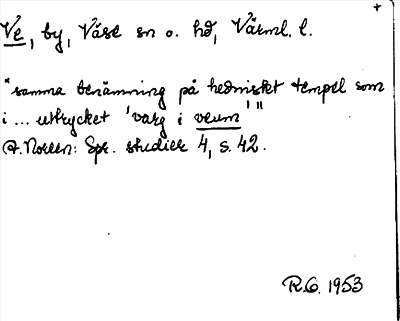 +
Ve, by, Väse sn o. hd, Värml. l.
"samma benämning på hedniskt tempel som
i ... uttrycket 'varg i veum' "
A. Noreen: Spr. studier 4, s. 42.
R.G. 1953